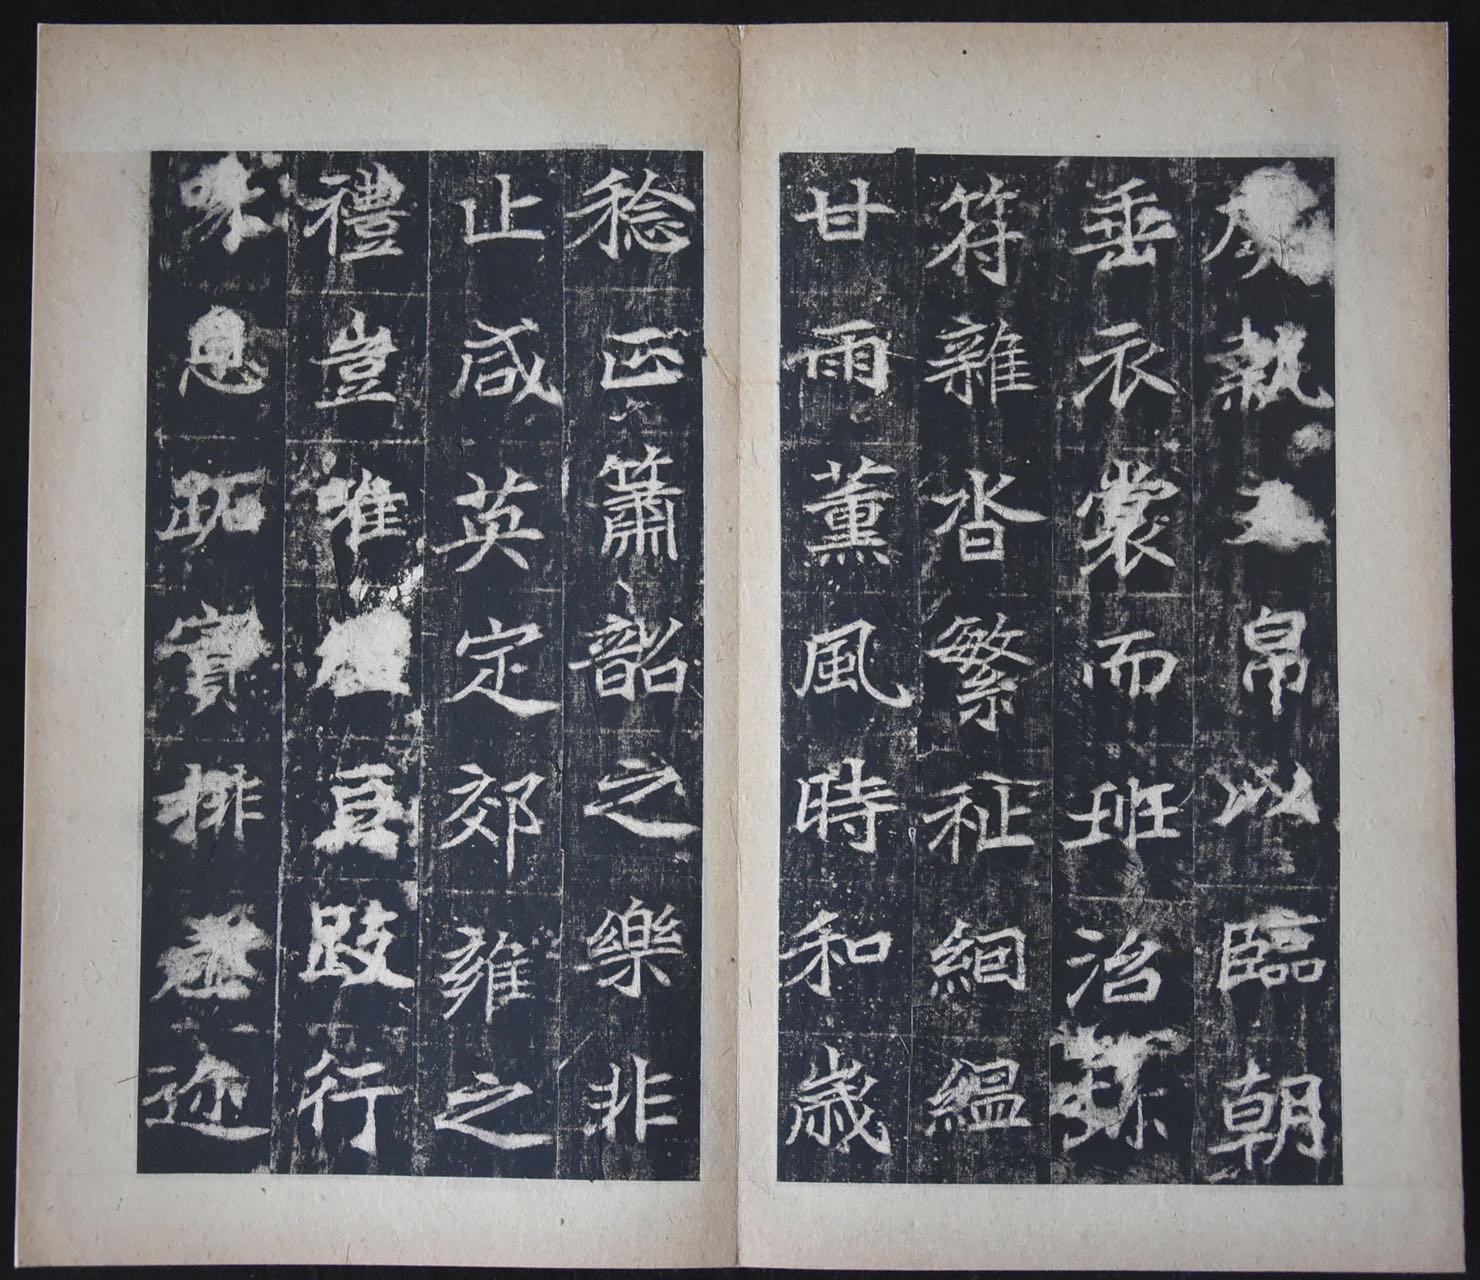 執玉帛以臨朝
垂衣裳而班治
符雜沓繁祉絪縕
甘雨薰風時和歲
稔正簫韶之樂非
止咸英定郊雍之
禮豈唯 豆跂行
息 實排虛迩